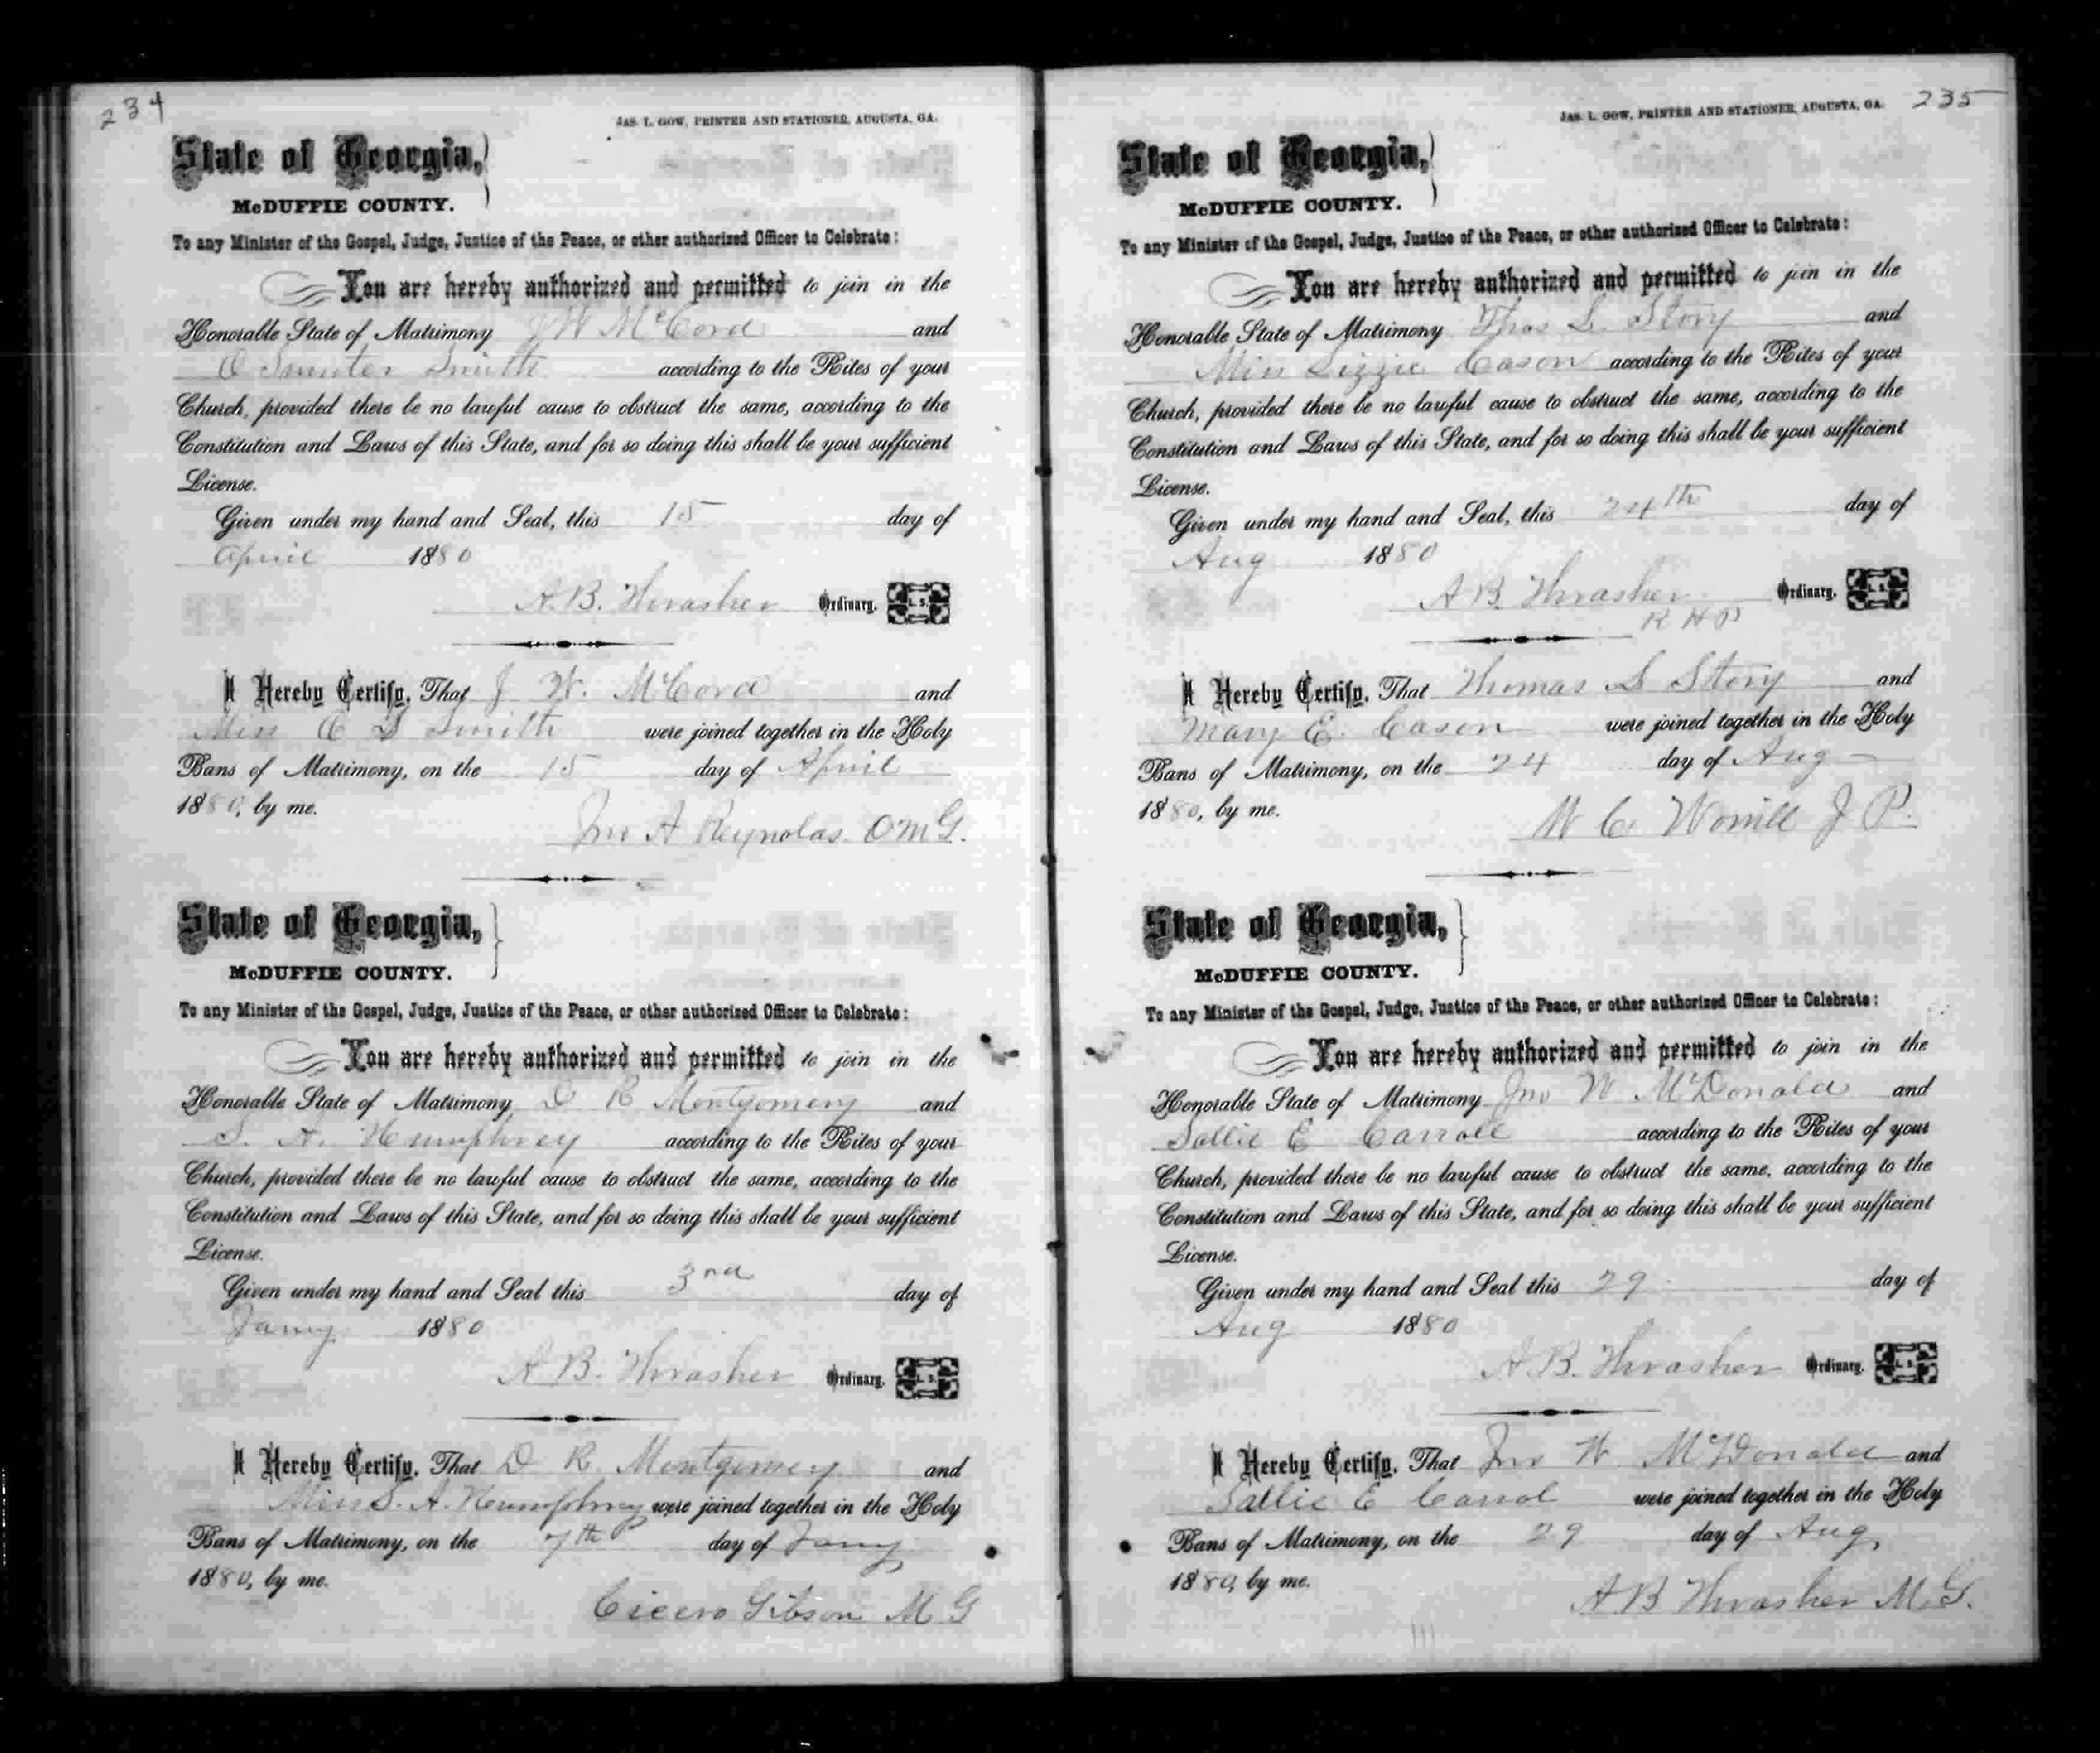 234
JAS. L. GOW, PRINTER AND STATIONER, AUGUSTA, GA.
State of Georgia,
McDUFFIE COUNTY.
To any Minister of the Gospel, Judge, Justice of the Peace, or other authorized Officer to Celebrate:
You are hereby authorized and permitted to join in the
Honorable State of Matrimony J W McCord and
O Sumter Smith according to the Rites of your
Church, provided there be no lawful cause to obstruct the same, according to the
Constitution and Laws of this State, and for so doing this shall be your sufficient
License.
Given under my hand and Seal, this 15 day of
April 1880
A. B. Thrasher Ordinary. L. S.
I Hereby Certify, That J W. McCord and
Miss O S Smith were joined together in the Holy
Bans of Matrimony, on the 15 day of April
1880, by me.
Jno A Reynolds. O M G.
State of Georgia,
McDUFFIE COUNTY.
To any Minister of the Gospel, Judge, Justice of the Peace, or other authorized Officer to Celebrate:
You are hereby authorized and permitted to join in the
Honorable State of Matrimony D R Montgomery and
S. A. Humphrey according to the Rites of your
Church, provided there be no lawful cause to obstruct the same, according to the
Constitution and Laws of this State, and for so doing this shall be your sufficient
License.
Given under my hand and Seal this 3rd day of
Jany 1880
A B. Thrasher Ordinary. L. S.
I Hereby Certify, That D R Montgomery and
Miss S. A. Humphrey were joined together in the Holy
Bans of Matrimony, on the 7th day of Jany
1880, by me.
Cicero Gibson M G
235
JAS. L. GOW, PRINTER AND STATIONER, AUGUSTA, GA.
State of Georgia,
McDUFFIE COUNTY.
To any Minister of the Gospel, Judge, Justice of the Peace, or other authorized Officer to Celebrate:
You are hereby authorized and permitted to join in the
Honorable State of Matrimony Thos S. Story and
Miss Lizzie Cason according to the Rites of your
Church, provided there be no lawful cause to obstruct the same, according to the
Constitution and Laws of this State, and for so doing this shall be your sufficient
License.
Given under my hand and Seal, this 24th day of
Aug 1880
A B. Thrasher Ordinary. L. S.
R H P
I Hereby Certify, That Thomas S Story and
Mary E. Cason were joined together in the Holy
Bans of Matrimony, on the 24 day of Aug
1880, by me.
W C Worrill J P.
State of Georgia,
McDUFFIE COUNTY.
To any Minister of the Gospel, Judge, Justice of the Peace, or other authorized Officer to Celebrate:
You are hereby authorized and permitted to join in the
Honorable State of Matrimony Jno W McDonald and
Sallie E Carroll according to the Rites of your
Church, provided there be no lawful cause to obstruct the same, according to the
Constitution and Laws of this State, and for so doing this shall be your sufficient
License.
Given under my hand and Seal this 29 day of
Aug 1880
A. B. Thrasher Ordinary. L. S.
I Hereby Certify, That Jno W. McDonald and
Sallie E Carrol were joined together in the Holy
Bans of Matrimony, on the 29 day of Aug
1880, by me.
A B Thrasher M. G.